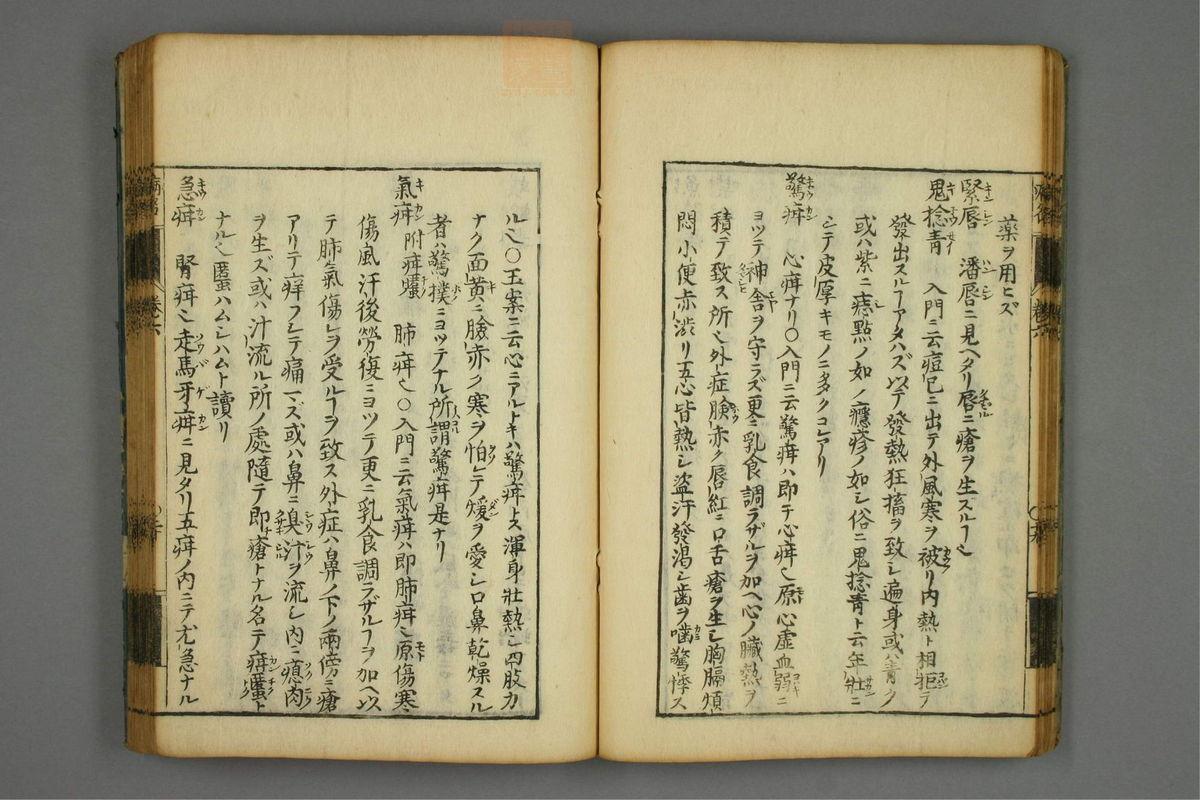 藥ヲ用ヒズ
緊唇 潘唇ニ見ヘタリ唇ニ瘡ヲ生スルヿ也
鬼捻青 入門ニ云痘已ニ出テ外風寒ヲ被リ内熱ト相拒テ
發出スルヿアタハズ以テ發熱狂搐ヲ致シ遍身或ハ青ク
或ハ紫ニ痣點ノ如ク癮疹ノ如シ俗ニ鬼捻青ト云年壯ニ
シテ皮厚キモノニ多クコレアリ
驚疳 心疳ナリ○入門ニ云驚疳ハ即チ心疳也原心虚血弱ニ
ヨツテ神舎ヲ守ラズ更ニ乳食調ラザルヲ加ヘ心ノ臟熱ヲ
積テ致ス所也外症臉赤ク唇紅ニ口舌瘡ヲ生シ胸膈煩
悶小便赤澁リ五心皆熱シ盜汗發渇シ歯ヲ噛驚悸ス
ル也○玉案ニ云心ニアルトキハ驚疳トス渾身壯熱シ四肢力
ナク面黄ニ臉赤ク寒ヲ怕レテ煖ヲ愛シ口鼻乾燥スル
者ハ驚撲ニヨツテナル所謂驚疳是ナリ
氣疳 附疳䘌 肺疳也○入門ニ云氣疳ハ即肺疳也原傷寒
傷風汗後勞復ニヨツテ更ニ乳食調ラザルヿヲ加ヘ以
テ肺氣傷レヲ受ルヿヲ致ス外症ハ鼻ノ下ノ兩傍ニ瘡
アリテ痒フシテ痛マズ或ハ鼻ニ臭汁ヲ流シ内ニ瘜肉
ヲ生ズ或ハ汁流ル所ノ處隨テ即チ瘡トナル名テ疳䘌ト
ナル也䘌ハムシハムト讀リ
急疳 腎疳也走馬牙疳ニ見タリ五疳ノ内ニテ尤急ナル
卷六
卷六